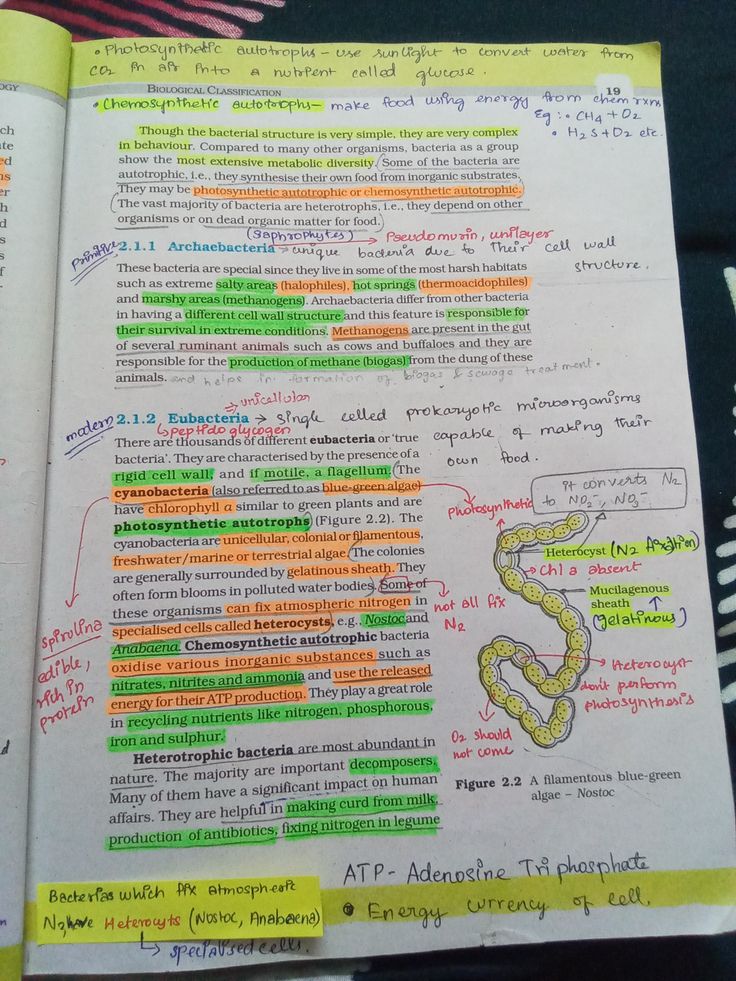 • Photosynthetic autotrophs - use sunlight to convert water from
CO2 in air into a nutrient called glucose.
OGY
BIOLOGICAL CLASSIFICATION
19
• Chemosynthetic autotrophs - make food using energy from chem rxns
Eg : • CH4 + O2
• H2S + O2 etc.
Though the bacterial structure is very simple, they are very complex
in behaviour. Compared to many other organisms, bacteria as a group
show the most extensive metabolic diversity. (Some of the bacteria are
autotrophic, i.e., they synthesise their own food from inorganic substrates.
They may be photosynthetic autotrophic or chemosynthetic autotrophic.
(The vast majority of bacteria are heterotrophs, i.e., they depend on other
organisms or on dead organic matter for food.)
(Saphrophytes)
Pseudomurin, unilayer
Primitive
2.1.1 Archaebacteria → unique bacteria due to their cell wall
structure.
These bacteria are special since they live in some of the most harsh habitats
such as extreme salty areas (halophiles), hot springs (thermoacidophiles)
and marshy areas (methanogens). Archaebacteria differ from other bacteria
in having a different cell wall structure and this feature is responsible for
their survival in extreme conditions. Methanogens are present in the gut
of several ruminant animals such as cows and buffaloes and they are
responsible for the production of methane (biogas) from the dung of these
animals. and helps in formation of biogas & sewage treatment.
⇒ unicellular
modern
2.1.2 Eubacteria → single celled prokaryotic microorganisms
↳ peptidoglycogen
capable of making their
own food.
There are thousands of different eubacteria or 'true
bacteria'. They are characterised by the presence of a
rigid cell wall, and if motile, a flagellum. (The
cyanobacteria (also referred to as blue-green algae)
have chlorophyll a similar to green plants and are
photosynthetic autotrophs) (Figure 2.2). The
cyanobacteria are unicellular, colonial or filamentous,
freshwater/marine or terrestrial algae. (The colonies
are generally surrounded by gelatinous sheath. They
often form blooms in polluted water bodies.) Some of
these organisms can fix atmospheric nitrogen in
specialised cells called heterocysts, e.g., Nostoc and
Anabaena. Chemosynthetic autotrophic bacteria
oxidise various inorganic substances such as
nitrates, nitrites and ammonia and use the released
energy for their ATP production. They play a great role
in recycling nutrients like nitrogen, phosphorous,
iron and sulphur.
Heterotrophic bacteria are most abundant in
nature. The majority are important decomposers.
Many of them have a significant impact on human
affairs. They are helpful in making curd from milk,
production of antibiotics, fixing nitrogen in legume
spirolina
edible,
rich in
protein
it converts N2
to NO2-, NO3-
photosynthetic
Heterocyst (N2 fixation)
→ Chl a absent
Mucilagenous
sheath
(gelatinous)
not all fix
N2
Heterocyst
don't perform
photosynthesis
O2 should
not come
Figure 2.2 A filamentous blue-green
algae – Nostoc
ATP - Adenosine Tri phosphate
• Energy currency of cell.
Bacterias which fix atmospheric
N2, have Heterocyts (Nostoc, Anabaena)
↳ specialised cells.